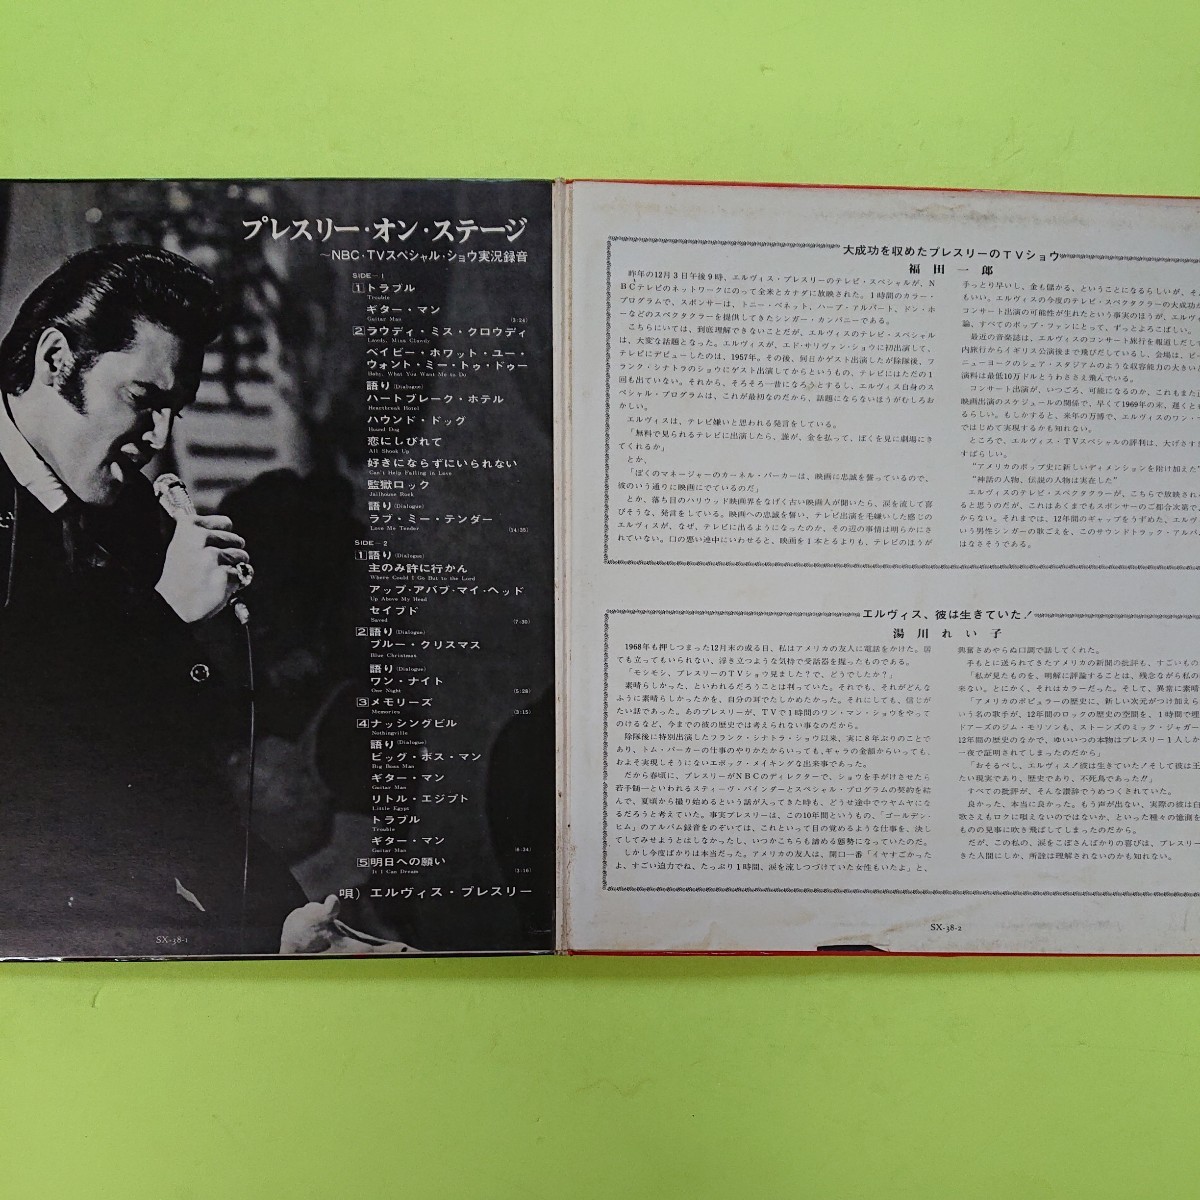 プレスリー・オン・ステージ
〜NBC・TVスペシャル・ショウ実況録音
SIDE-1
1 トラブル
Trouble
ギター・マン
Guitar Man (3:24)
2 ラウディ・ミス・クロウディ
Lawdy, Miss Clawdy
ベイビー・ホワット・ユー・
ウォント・ミー・トゥ・ドゥー
Baby, What You Want Me to Do
語り(Dialogue)
ハートブレーク・ホテル
Heartbreak Hotel
ハウンド・ドッグ
Hound Dog
恋にしびれて
All Shook Up
好きにならずにいられない
Can't Help Falling in Love
監獄ロック
Jailhouse Rock
語り(Dialogue)
ラブ・ミー・テンダー
Love Me Tender (14:35)
SIDE-2
1 語り(Dialogue)
主のみ許に行かん
Where Could I Go But to the Lord
アップ・アバブ・マイ・ヘッド
Up Above My Head
セイブド
Saved (7:30)
2 語り(Dialogue)
ブルー・クリスマス
Blue Christmas
語り(Dialogue)
ワン・ナイト
One Night (5:28)
3 メモリーズ
Memories (3:15)
4 ナッシングビル
Nothingville
語り(Dialogue)
ビッグ・ボス・マン
Big Boss Man
ギター・マン
Guitar Man
リトル・エジプト
Little Egypt
トラブル
Trouble
ギター・マン
Guitar Man (6:24)
5 明日への願い
If I Can Dream (3:16)
唄) エルヴィス・プレスリー
SX-38-1
大成功を収めたプレスリーのTVショウ
福田一郎
昨年の12月3日午後9時、エルヴィス・プレスリーのテレビ・スペシャルが、N
BCテレビのネットワークにのって全米とカナダに放映された。1時間のカラー・
プログラムで、スポンサーは、トニー・ベネット、ハーブ・アルパート、ドン・ホ
ーなどのスペクタクラーを提供してきたシンガー・カンパニーである。
こちらにいては、到底理解できないことだが、エルヴィスのテレビ・スペシャル
は、大変な話題となった。エルヴィスが、エド・サリヴァン・ショウに初出演して、
テレビにデビューしたのは、1957年。その後、何日かゲスト出演したが除隊後、フ
ランク・シナトラのショウにゲスト出演してからというもの、テレビにはただの1
回も出ていない。それから、そろそろ一昔になろうとするし、エルヴィス自身のス
ペシャル・プログラムは、これが最初なのだから、話題にならないほうがむしろお
かしい。
エルヴィスは、テレビ嫌いと思われる発言をしている。
「無料で見られるテレビに出演したら、誰が、金を払って、ぼくを見に劇場にき
てくれるか」
とか、
「ぼくのマネージャーのカーネル・パーカーは、映画に忠誠を誓っているので、
彼のいう通りに映画にでているのだ」
とか、落ち目のハリウッド映画界をなげく古い映画人が聞いたら、涙を流して喜
びそうな、発言をしている。映画への忠誠を誓い、テレビ出演を毛嫌いした感じの
エルヴィスが、なぜ、テレビに出るようになったのか、その辺の事情は明らかにさ
れていない。口の悪い連中にいわせると、映画を1本とるよりも、テレビのほうが
手っとり早いし、金も儲かる、ということになるらしいが、そ
もいい。エルヴィスの今度のテレビ・スペクタクラーの大成功が
コンサート出演の可能性が生れたという事実のほうが、エルヴィ
論、すべてのポップ・ファンにとって、ずっとよろこばしい。
最近の音楽誌は、エルヴィスのコンサート旅行を報道しだして
内旅行からイギリス公演後まで飛びだしているし、会場は、ビー
ニューヨークのシェア・スタジアムのような収容能力の大きい
演料は最低10万ドルとうわささえ飛んでいる。
コンサート出演が、いつごろ、可能になるのか、これもまた
映画出演のスケジュールの関係で、早くて1969年の末、遅くと
るらしい。もしかすると、来年の万博で、エルヴィスのワン・
ではじめて実現するかも知れない。
ところで、エルヴィス・TVスペシャルの評判は、大げさす
すばらしい。
"アメリカのポップ史に新しいディメンションを附け加えた"
"神話の人物、伝説の人物は実在した"
エルヴィスのテレビ・スペクタクラーが、こちらで放映される
ると思うのだが、これはあくまでもスポンサーのご都合次第で、
からない。それまでは、12年間のギャップをうずめた、エルヴィ
いう男性シンガーの歌ごえを、このサウンドトラック・アルバ
はなさそうである。
エルヴィス、彼は生きていた!
湯川れい子
1968年も押しつまった12月末の或る日、私はアメリカの友人に電話をかけた。居
ても立ってもいられない、浮き立つような気持で受話器を握ったものである。
「モシモシ、プレスリーのTVショウ見ました?で、どうでしたか?」
素晴らしかった、といわれるだろうことは判っていた。それでも、それがどんな
ふうに素晴らしかったかを、自分の耳でたしかめたかった。それにしても、信じが
たい話であった。あのプレスリーが、TVで1時間のワン・マン・ショウをやって
のけるなど、今までの彼の歴史では考えられない事なのだから。
除隊後に特別出演したフランク・シナトラ・ショウ以来、実に8年ぶりのことで
あり、トム・パーカーの仕事のやりかたからいっても、ギャラの金額からいっても、
およそ実現しそうにないエポック・メイキングな出来事であった。
だから春頃に、プレスリーがNBCのディレクターで、ショウを手がけさせたら
若手随一といわれるスティーヴ・バインダーとスペシャル・プログラムの契約を結
んで、夏頃から撮り始めるという話が入ってきた時も、どうせ途中でウヤムヤにな
るだろうと考えていた。事実プレスリーは、この10年間というもの、「ゴールデン・
ヒム」のアルバム録音をのぞいては、これといって目の覚めるような仕事を、決し
てしてみせようとはしなかったし、いつかこちらも諦める態勢になっていたのだ。
しかし今度ばかりは本当だった。アメリカの友人は、開口一番「イヤすごかった
よ、すごい迫力でね、たっぷり1時間、涙を流しつづけていた女性もいたよ」と、
興奮さめやらぬ口調で話してくれた。
手もとに送られてきたアメリカの新聞の批評も、すごいもの
「私が見たものを、明解に評論することは、残念ながら私の
来ない。とにかく、それはカラーだった。そして、異常に素晴
「アメリカのポピュラーの歴史に、新しい次元がつけ加えら
いう名の歌手が、12年間のロックの歴史の空間を、1時間で埋
ドアーズのジム・モリソンも、ストーンズのミック・ジャガー
12年間の歴史のなかで、ゆいいつの本物はプレスリー1人しか
一夜で証明されてしまったのだから」
「おそるべし、エルヴィス!彼は生きていた!そして彼は王
たい現実であり、歴史であり、不死鳥であった!!」
すべての批評が、そんな讃辞でうめつくされていた。
良かった、本当に良かった。もう声が出ない、実際の彼は白
歌さえもロクに唄えないのではないか、といった種々の憶測を
ものの見事に吹き飛ばしてしまったのだから。
だが、この私の、涙をこぼさんばかりの喜びは、プレスリー
きた人間にしか、所詮は理解されないのかも知れない。
SX-38-2